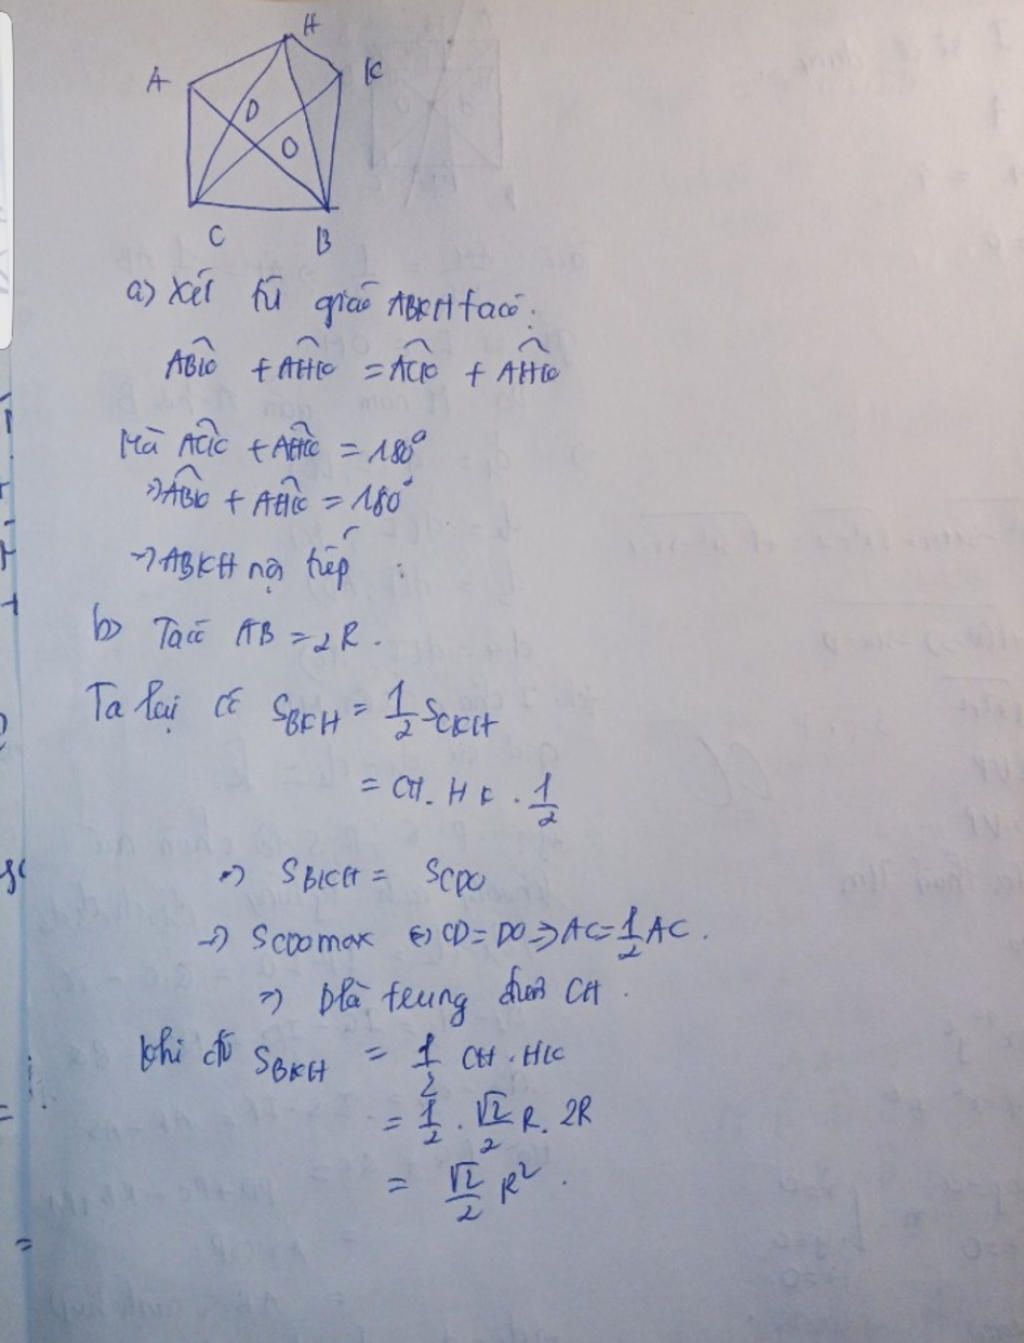 H
A
K
D
O
C
B
a) Xét tứ giác ABKH ta có:
ABK + AHK = ACK + AHK
Mà ACK + AHK = 180°
⇒ ABK + AHK = 180°
⇒ ABKH nội tiếp
b) Ta có AB = 2R.
Ta lại có S_BKH = 1/2 S_CKH
= CH. HK . 1/2
⇒ S_BKH = S_CDO
⇒ S_CDO max ⇔ CD = DO ⇒ AC = 1/2 AC.
⇒ D là trung điểm CH.
Khi đó S_BKH = 1/2 CH . HK
= 1/2 . √2/2 R. 2R
= √2/2 R².